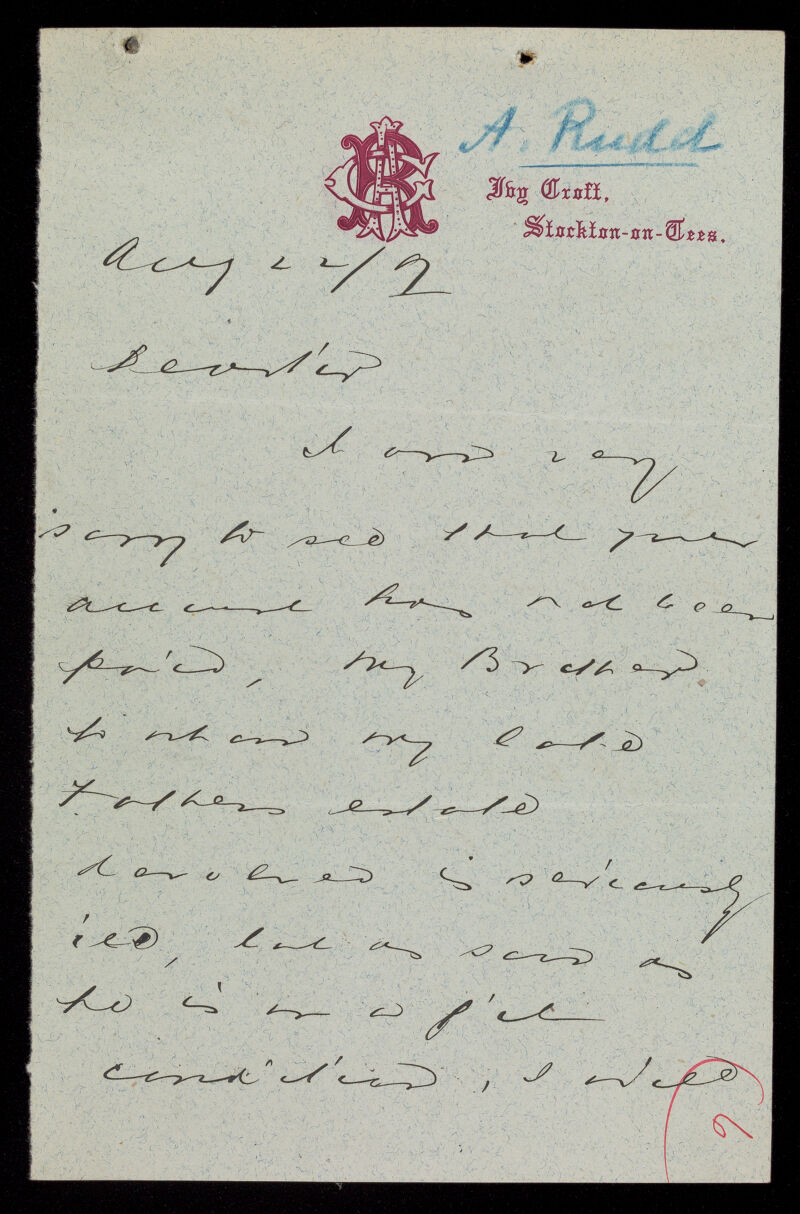 A. Rudd
Ivy Croft,
Stockton-on-Tees.
Aug 22/9
Dear Sir
I am very
sorry to see that your
account has not been
paid, my Brother
to whom my late
Fathers estate
devolved is seriously
ill, but as soon as
he is in a fit
condition, I will